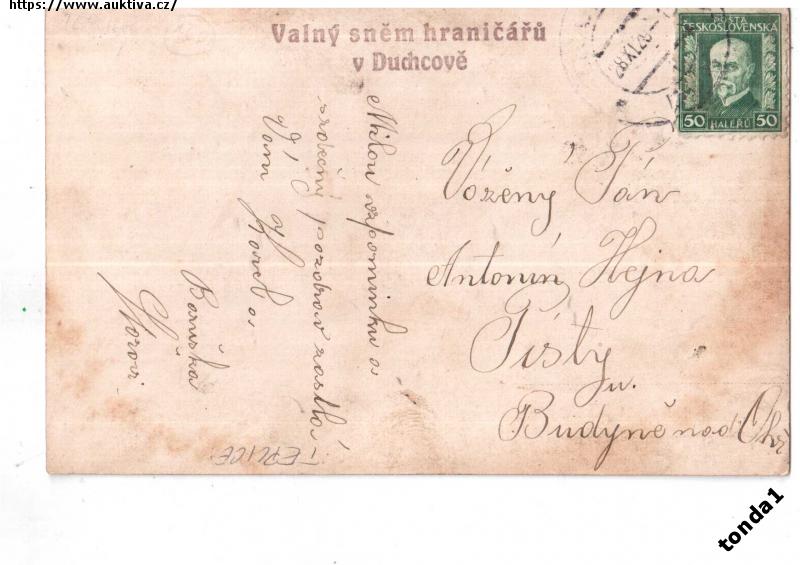 https://www.auktiva.cz/
Valný sněm hraničářů
v Duchcově
28.XI.28
POŠTA
ČESKOSLOVENSKÁ
50 HALÉŘŮ 50
Milou vzpomínku a
srdečný pozdrav zasílá
Vám
Baruška
Vóžěný Pán
Antonín Hejna
Písty
u.
Budyně nad Ohř
TEPLICE
tonda1